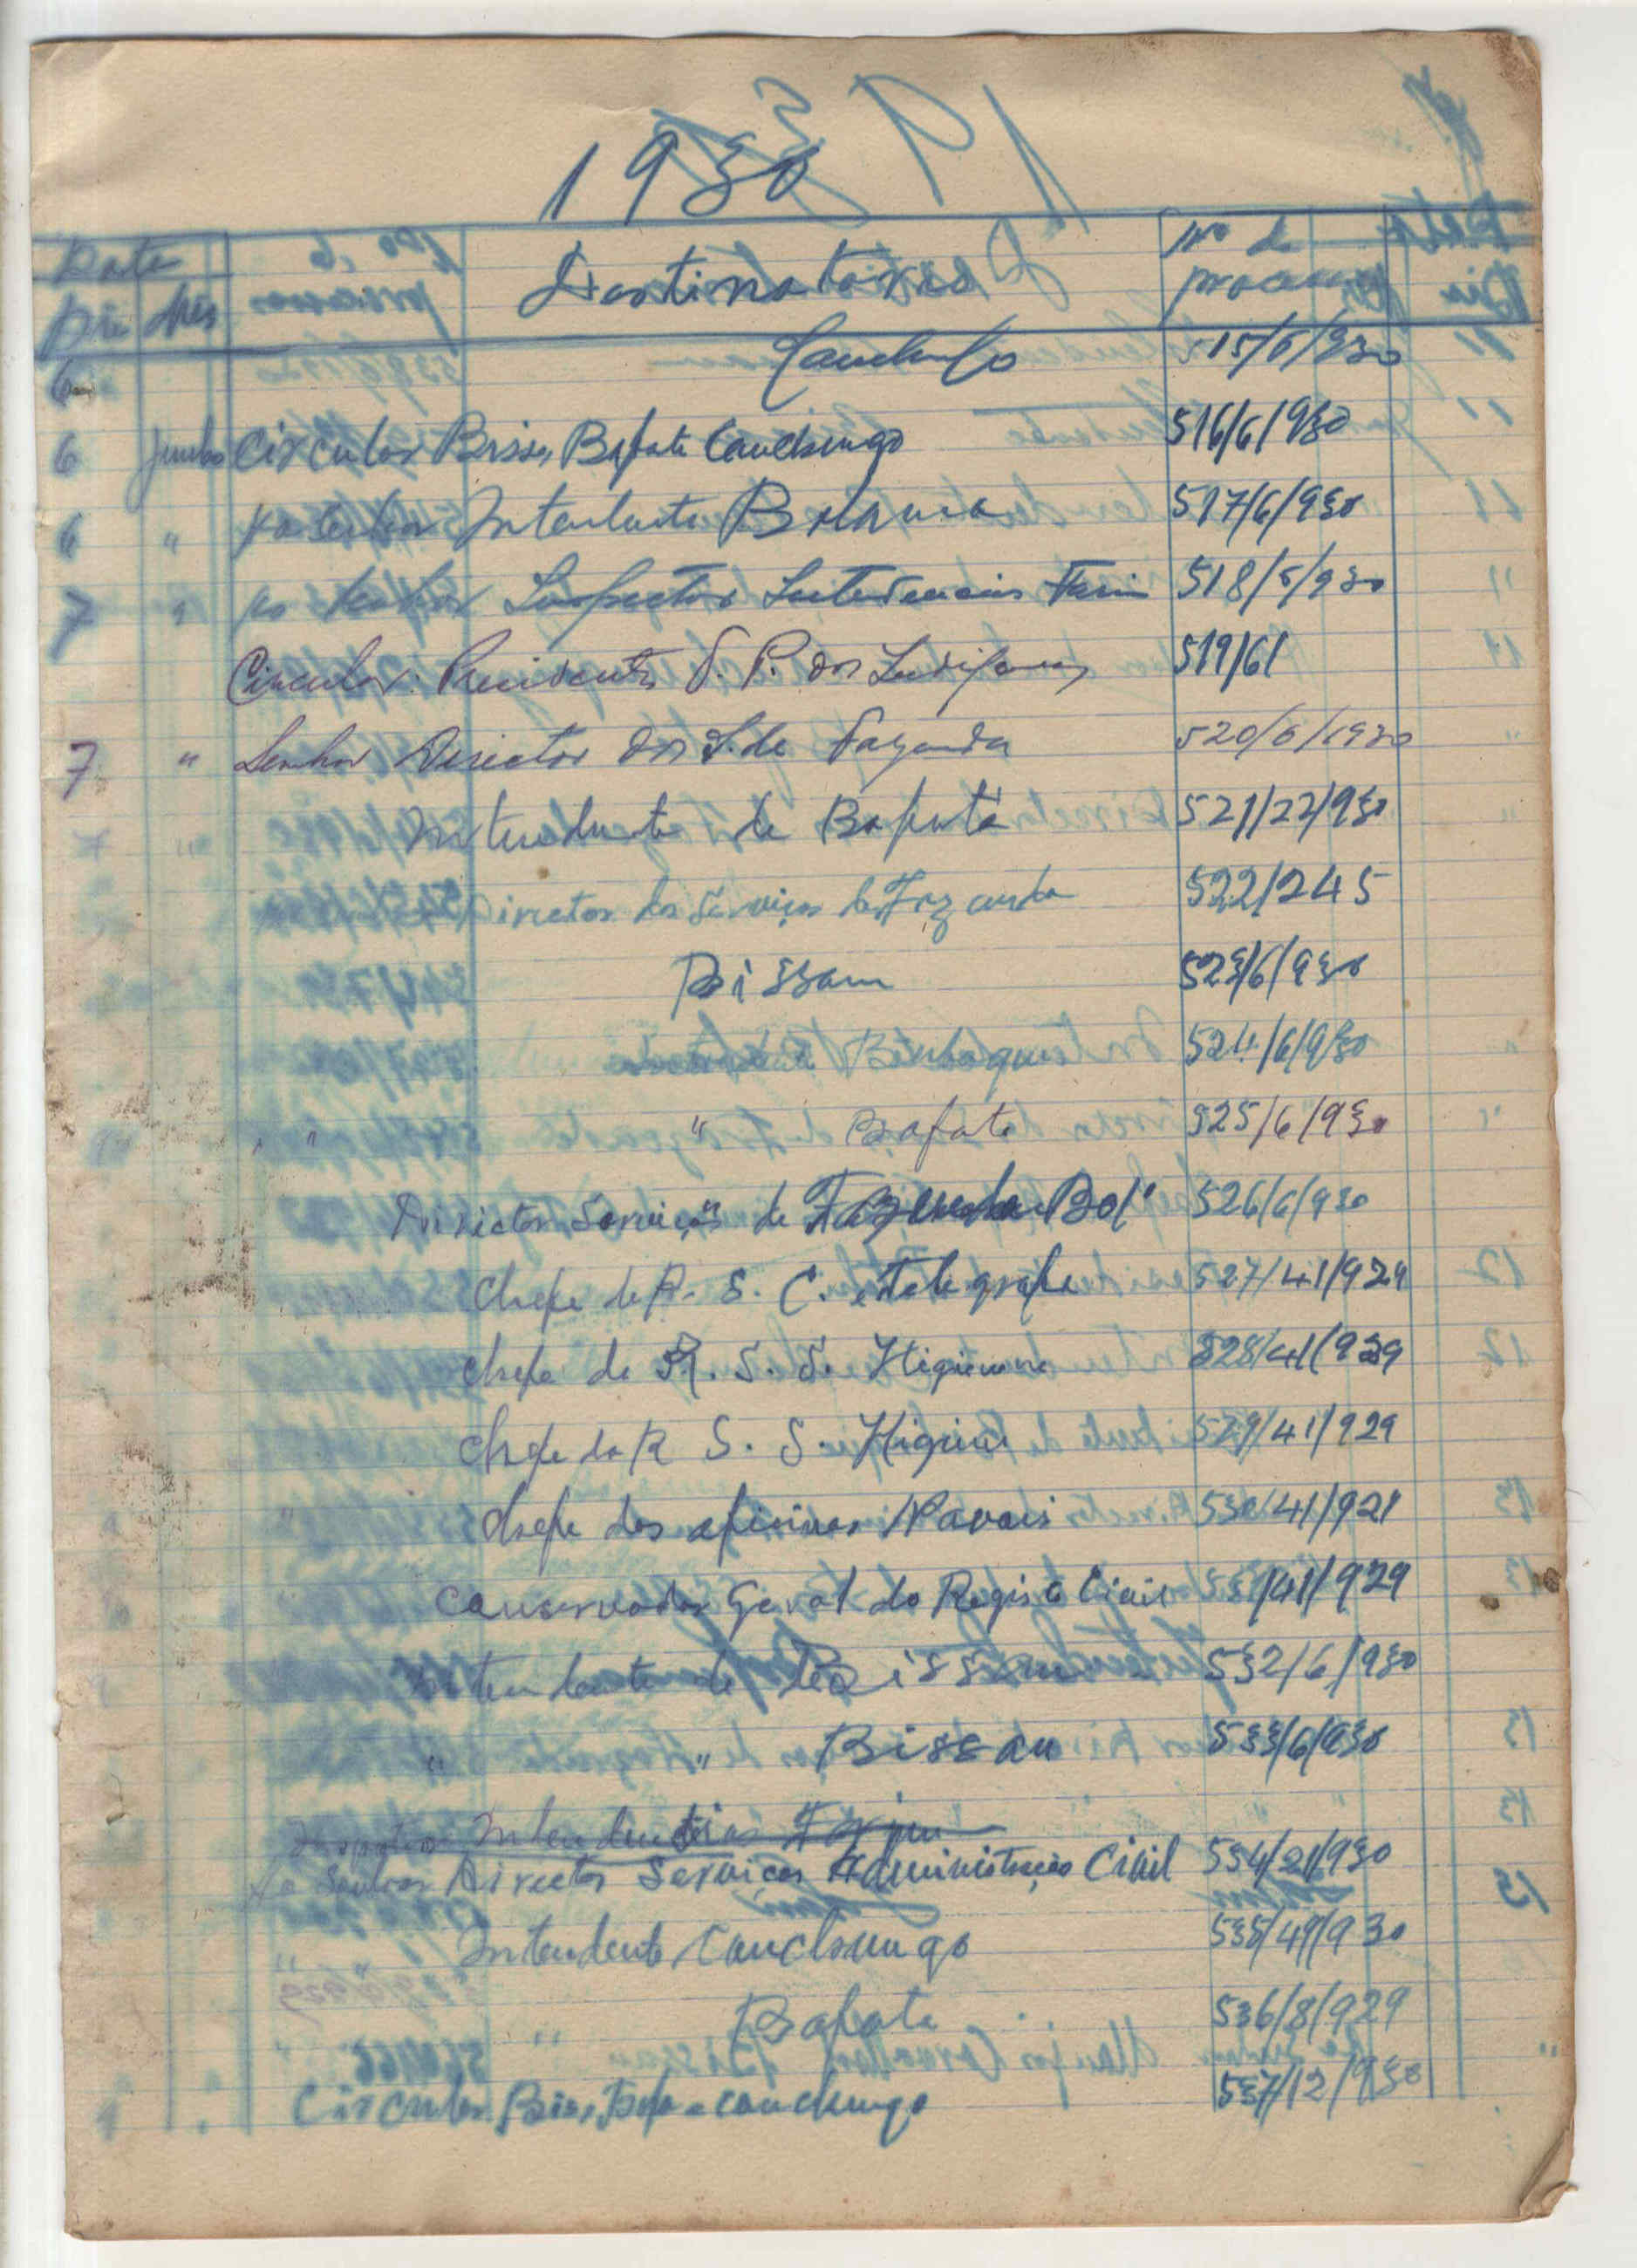 1930
Data Nº de Destinatarios Nº de
Dia Mês processo processo
6 Canchungo 515/6/930
6 Junho Circular Bissau, Bafata Canchungo 516/6/930
6 " Ao Senhor Intendente Bolama 517/6/930
7 " Ao Senhor Inspector Intendencias Farim 518/6/930
Circular. Presidentes dos Indigenas 519/61
7 " Senhor Director dos S. de Fazenda 520/6/1930
Intendente de Bafatá 521/22/930
Director dos Serviços de Fazenda 522/245
Bissau 523/6/930
524/6/930
" Bafata 525/6/930
Director Serviços de Fazenda Bol. 526/6/930
Chefe da R. S. C. e Telegrafo 527/41/929
Chefe da R. S. S. Higiene 528/41/929
Chefe da R S. S. Higiene 529/41/929
Chefe das oficinas Navais 530/41/929
Conservador Geral do Registo Civil 531/41/929
Intendente de Bissau 532/6/930
" " Bissau 533/6/930
Inspector Intendencias Farim
Ao Senhor Director Serviços Administração Civil 534/21/930
Intendente Canchungo 535/49/930
" Bafata 536/8/929
Circular Bis, Bafa e canchungo 537/12/930